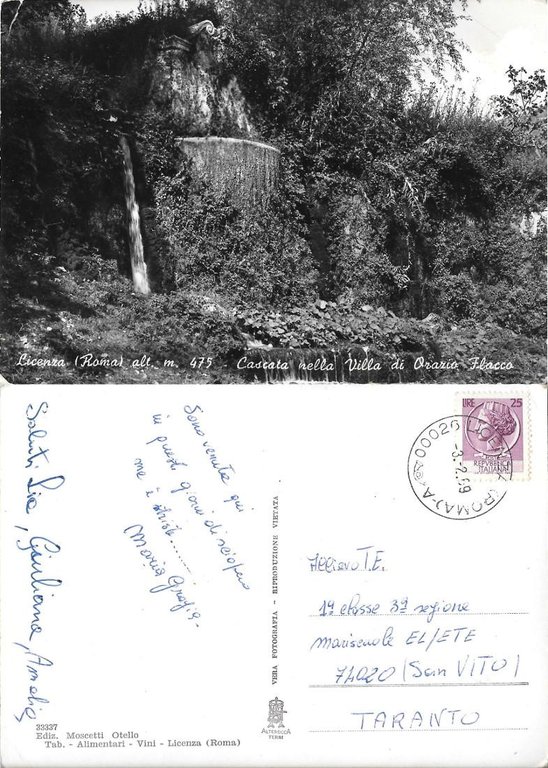 Licenza (Roma) alt. m. 475 - Cascata nella Villa di Orazio Flacco
Saluti Lia, Giuliana, Amelia
Sono venuta qui
in questi giorni di sciopero
ma è triste.......
Maria Grazia.
VERA FOTOGRAFIA - RIPRODUZIONE VIETATA
LIRE 25
REPVBBLICA
ITALIANA
00026 LICENZA (ROMA) A
Allievo T.E.
1ª classe 3ª sezione
Mariscuole EL/ETE
74020 (San VITO)
TARANTO
33337
Ediz. Moscetti Otello
Tab. - Alimentari - Vini - Licenza (Roma)
ALTEROCCA
TERNI